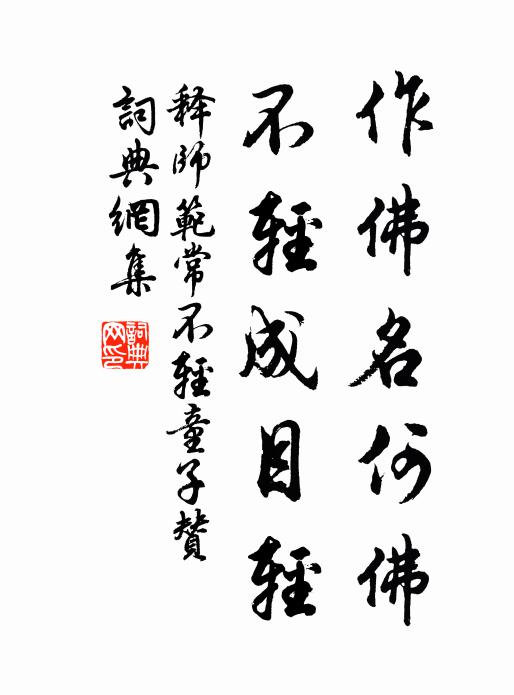 作佛名何佛
不輕成目輕
释師範常不輕童子贊
詞典網集
詞典網印